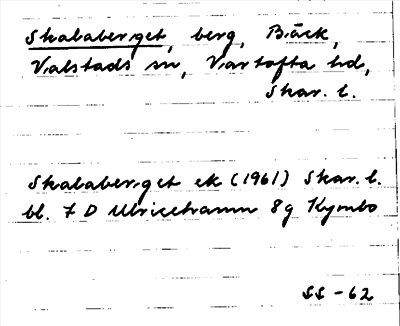 Skalaberget, berg, Bäck,
Valstads sn, Vartofta hd,
Skar. l.
Skalaberget ek (1961) Skar. l.
bl. 7 D Ulricehamn 8g Kymbo
SS-62